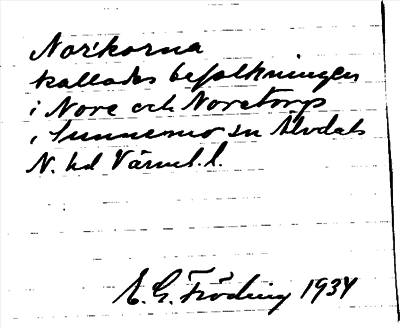 Norkorna
kallades befolkningen
i Nore och Noretorp
i Sunnemo sn Älvdals
N. hd Värml. l.
E. G. Fröding 1934